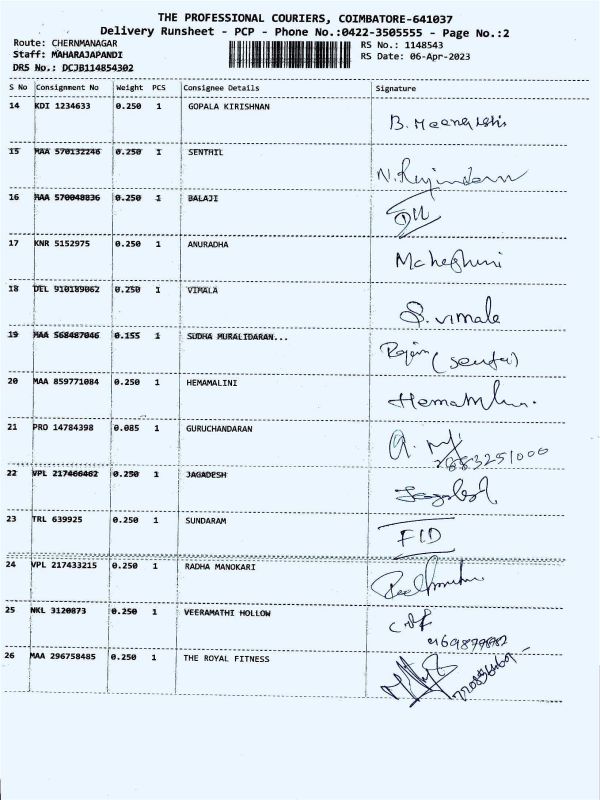 THE PROFESSIONAL COURIERS, COIMBATORE-641037
Delivery Runsheet - PCP - Phone No.:0422-3505555 - Page No.:2
Route: CHERNMANAGAR
RS No.: 1148543
Staff: MAHARAJAPANDI
RS Date: 06-Apr-2023
DRS No.: DCJB114854302
S No Consignment No Weight PCS Consignee Details Signature
14 KDI 1234633 0.250 1 GOPALA KIRISHNAN
15 MAA 570132246 0.250 1 SENTHIL
16 MAA 570048836 0.250 1 BALAJI
17 KNR 5152975 0.250 1 ANURADHA
18 DEL 910189062 0.250 1 VIMALA S. vimala
19 MAA 568487046 0.155 1 SUDHA MURALIDARAN...
20 MAA 859771084 0.250 1 HEMAMALINI
21 PRO 14784398 0.085 1 GURUCHANDARAN
22 VPL 217466462 0.250 1 JAGADESH
23 TRL 639925 0.250 1 SUNDARAM
24 VPL 217433215 0.250 1 RADHA MANOKARI
25 NKL 3120873 0.250 1 VEERAMATHI HOLLOW
26 MAA 296758485 0.250 1 THE ROYAL FITNESS